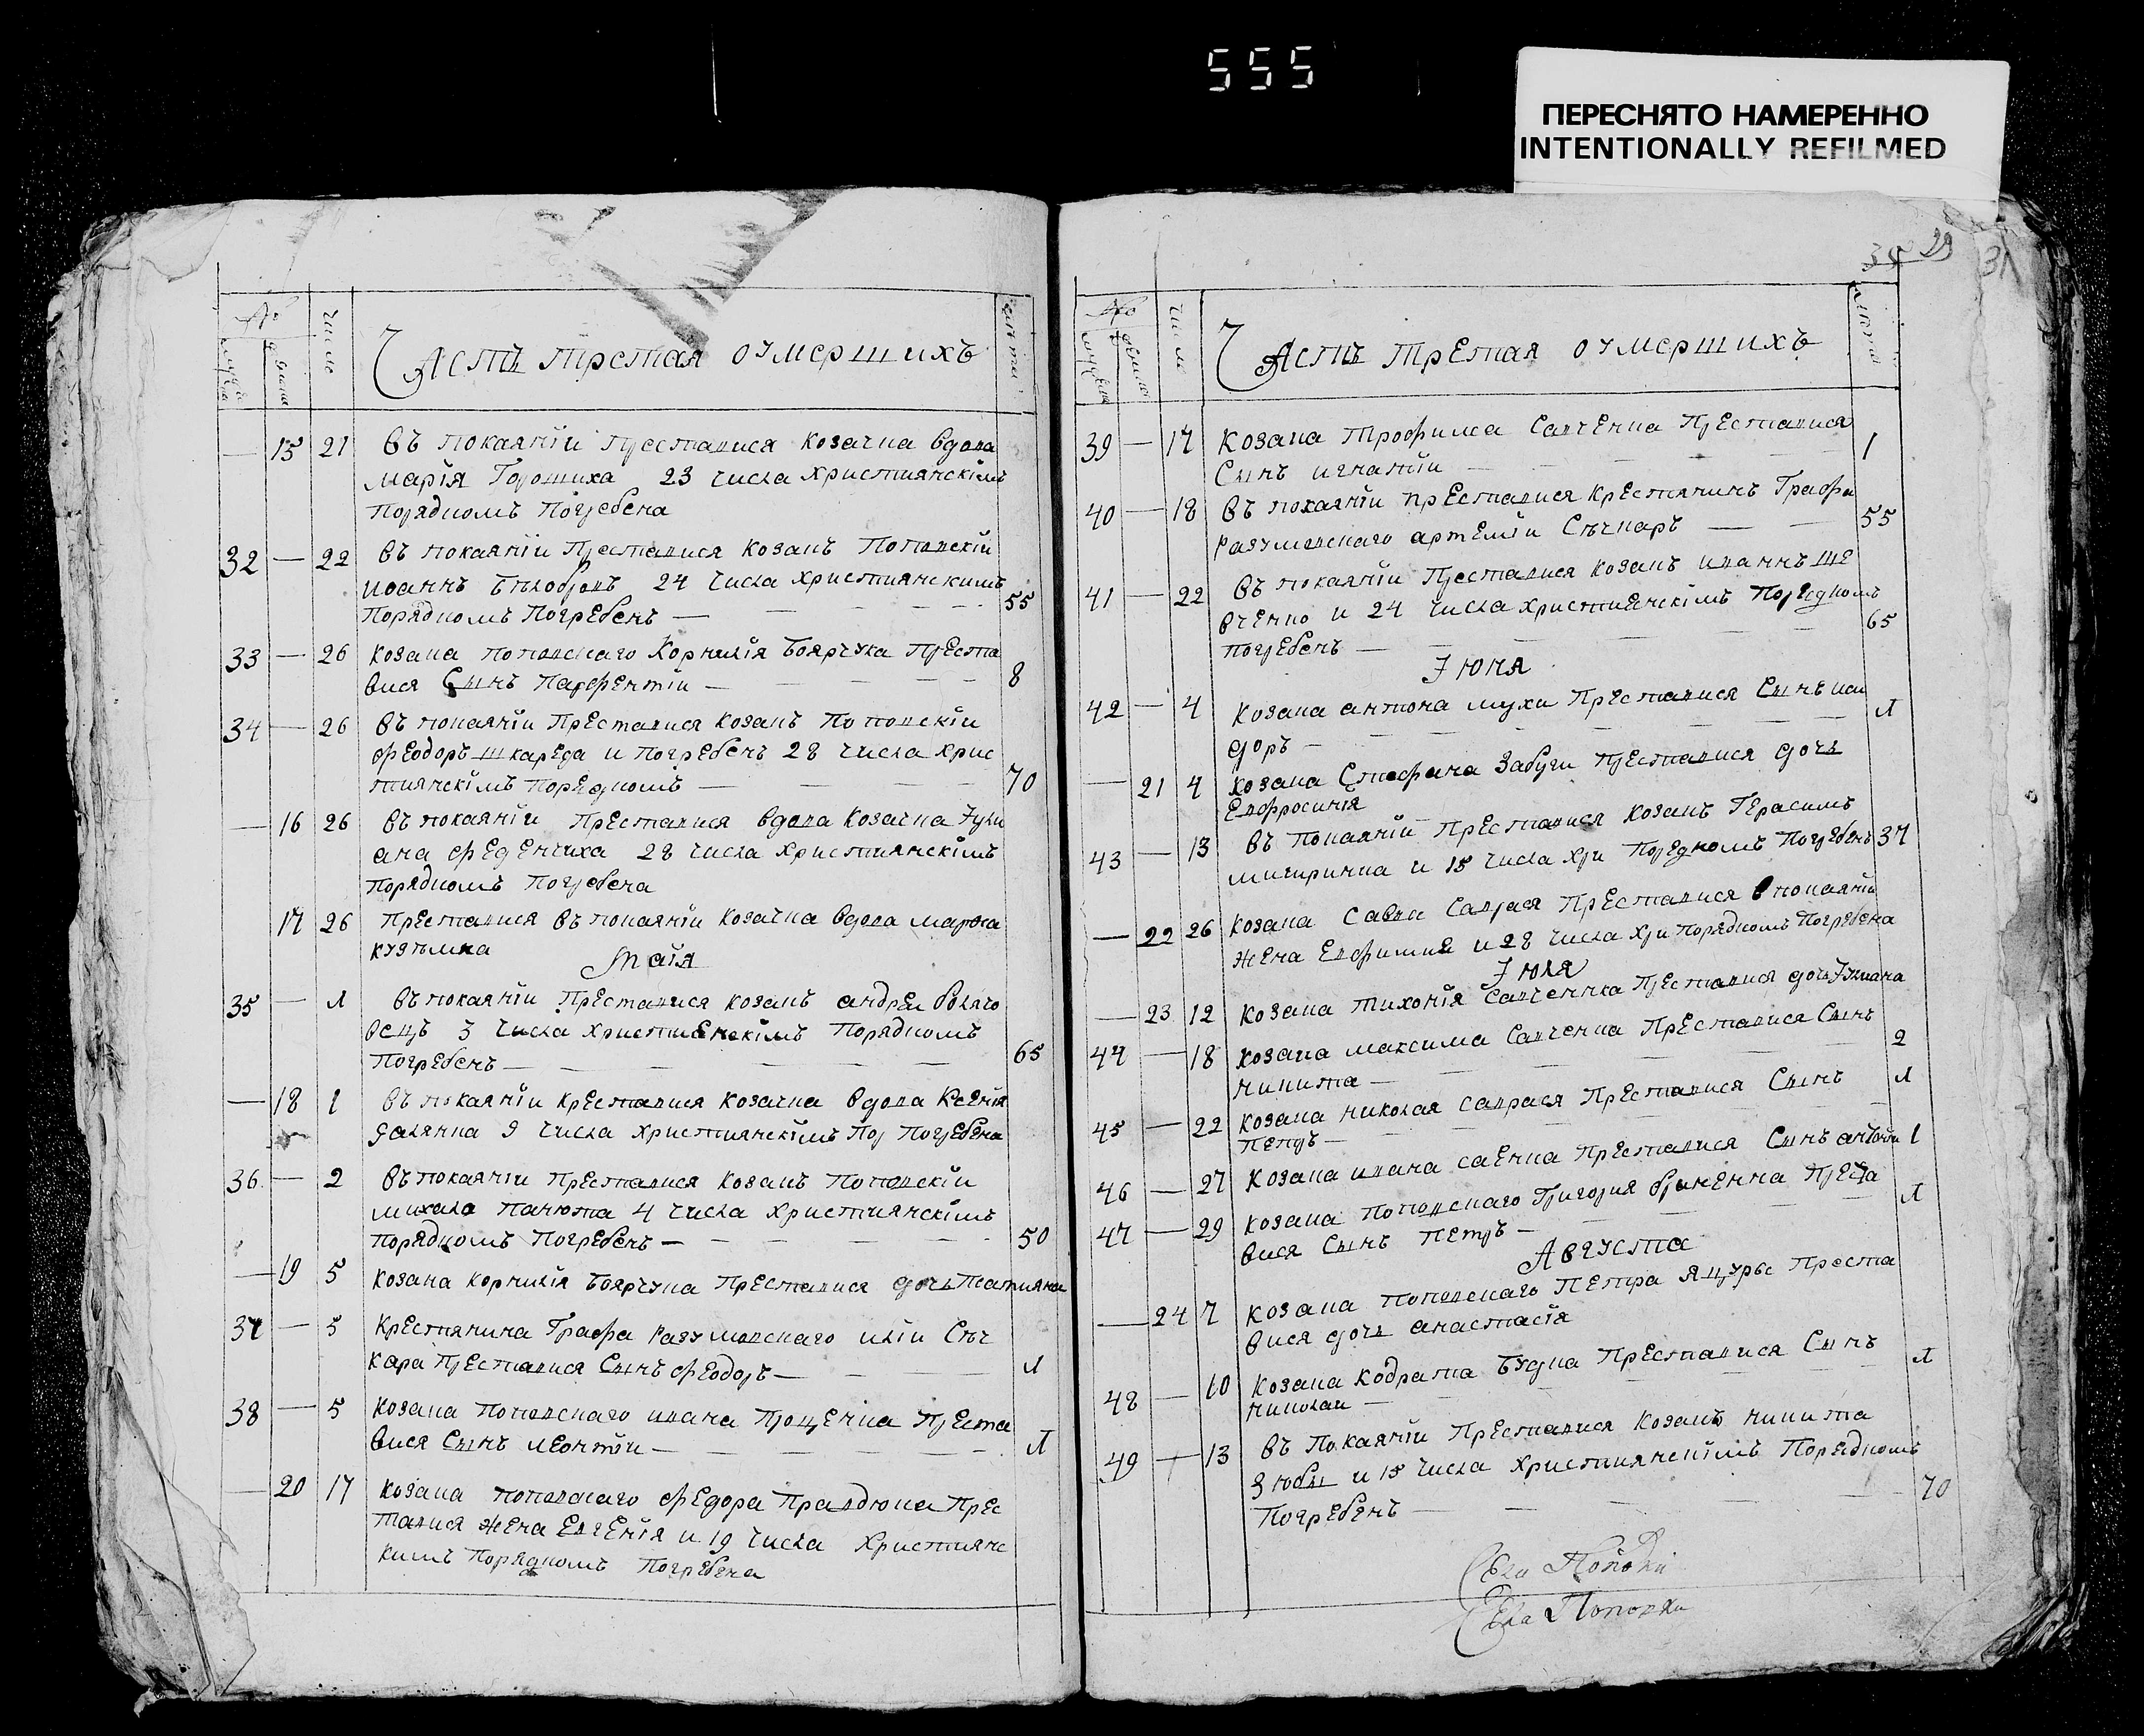 555
ПЕРЕСНЯТО НАМЕРЕННО
INTENTIONALLY REFILMED
29
31
№
число
Часть третая оумершихъ
15 21 въ покаянїи преставися козачка вдова
марїя Горошиха 23 числа християнскімъ
порядкомъ погребена
32 — 22 въ покаянїи преставися козакъ Поповскїи
иоаннъ Бѣлобровъ 24 числа християнскимъ
порядкомъ погребенъ — 55
33 — 26 козака поповскаго Корнилїя Боярчука преста
вися Сынъ Парфентїи — 8
34 — 26 въ покаянїи преставися козакъ поповскїи
феодоръ шкареда и погребенъ 28 числа хрис
тиянскімъ порядкомъ — 70
— 16 26 въ покаянїи преставися вдова козачка Іули
ана феденчиха 28 числа християнскімъ
порядкомъ погребена
17 26 преставися въ покаянїи козачка вдова марфа
кузьмка
Маїя
35 — 1 въ покаянїи преставися козакъ андреи
3 числа христиенскімъ порядкомъ
погребенъ — 65
— 18 1 въ покаянїи преставися козачка вдова Ксенїя
9 числа християнскімъ пор погребена
36 — 2 въ покаянїи преставися козакъ поповскїи
михало панюта 4 числа християнскімъ
порядкомъ погребенъ — 50
— 19 5 козака корнилїя Боярчука преставися дочь татияна
37 — 5 крестянина Графа Разумовскаго илїи Сѣч
кара преставися Сынъ феодоръ — 1
38 — 5 козака поповскаго ивана проценка преста
вися Сынъ леонтїи — 1
— 20 17 козака поповскаго федора правдюка прес
тавися жена Евгенїя и 19 числа християнс
кимъ порядкомъ погребена
№
число
Часть третая оумершихъ
39 — 17 козака трофима Савченка преставися
Сынъ игнатїи — 1
40 — 18 въ покаянїи преставися крестянинъ Графа
разумовскаго артемїи Сѣчкаръ — 55
41 — 22 въ покаянїи преставися козакъ иваннъ ше
вченко и 24 числа христиенскімъ порядкомъ
погребенъ — 65
Іюня
42 — 4 козака антона мухи преставися Сынъ иси
доръ — 1
— 21 4 козака Стефана Забуги преставися дочь
Евфросинїя
43 — 13 въ покаянїи преставися козакъ Герасимъ
мигиринка и 15 числа хри порядкомъ погребенъ 37
— 22 26 козака Савви Саврася преставися в покаянїи
жена Евфимия и 28 числа хри порядкомъ погребена
Іюля
— 23 12 козака тихонїя Савченка преставися дочь Іулиана
44 — 18 козака максима Савченка преставися Сынъ
никита — 2
45 — 22 козака николая саврася преставися Сынъ
петръ — 1
46 — 27 козака ивана саенка преставися Сынъ антонїи 1
47 — 29 козака поповскаго Григория гриненка преста
вися Сынъ петръ — 1
Августа
— 24 7 козака поповскаго Петра яцури преста
вися дочь анастасїя
48 — 10 козака кодрата Будка преставися Сынъ
николаи — 1
49 — 13 въ покаянїи преставися козакъ никита
Зюбы и 15 числа християнскімъ порядкомъ
погребенъ — 70
Села Поповки
Села Поповки